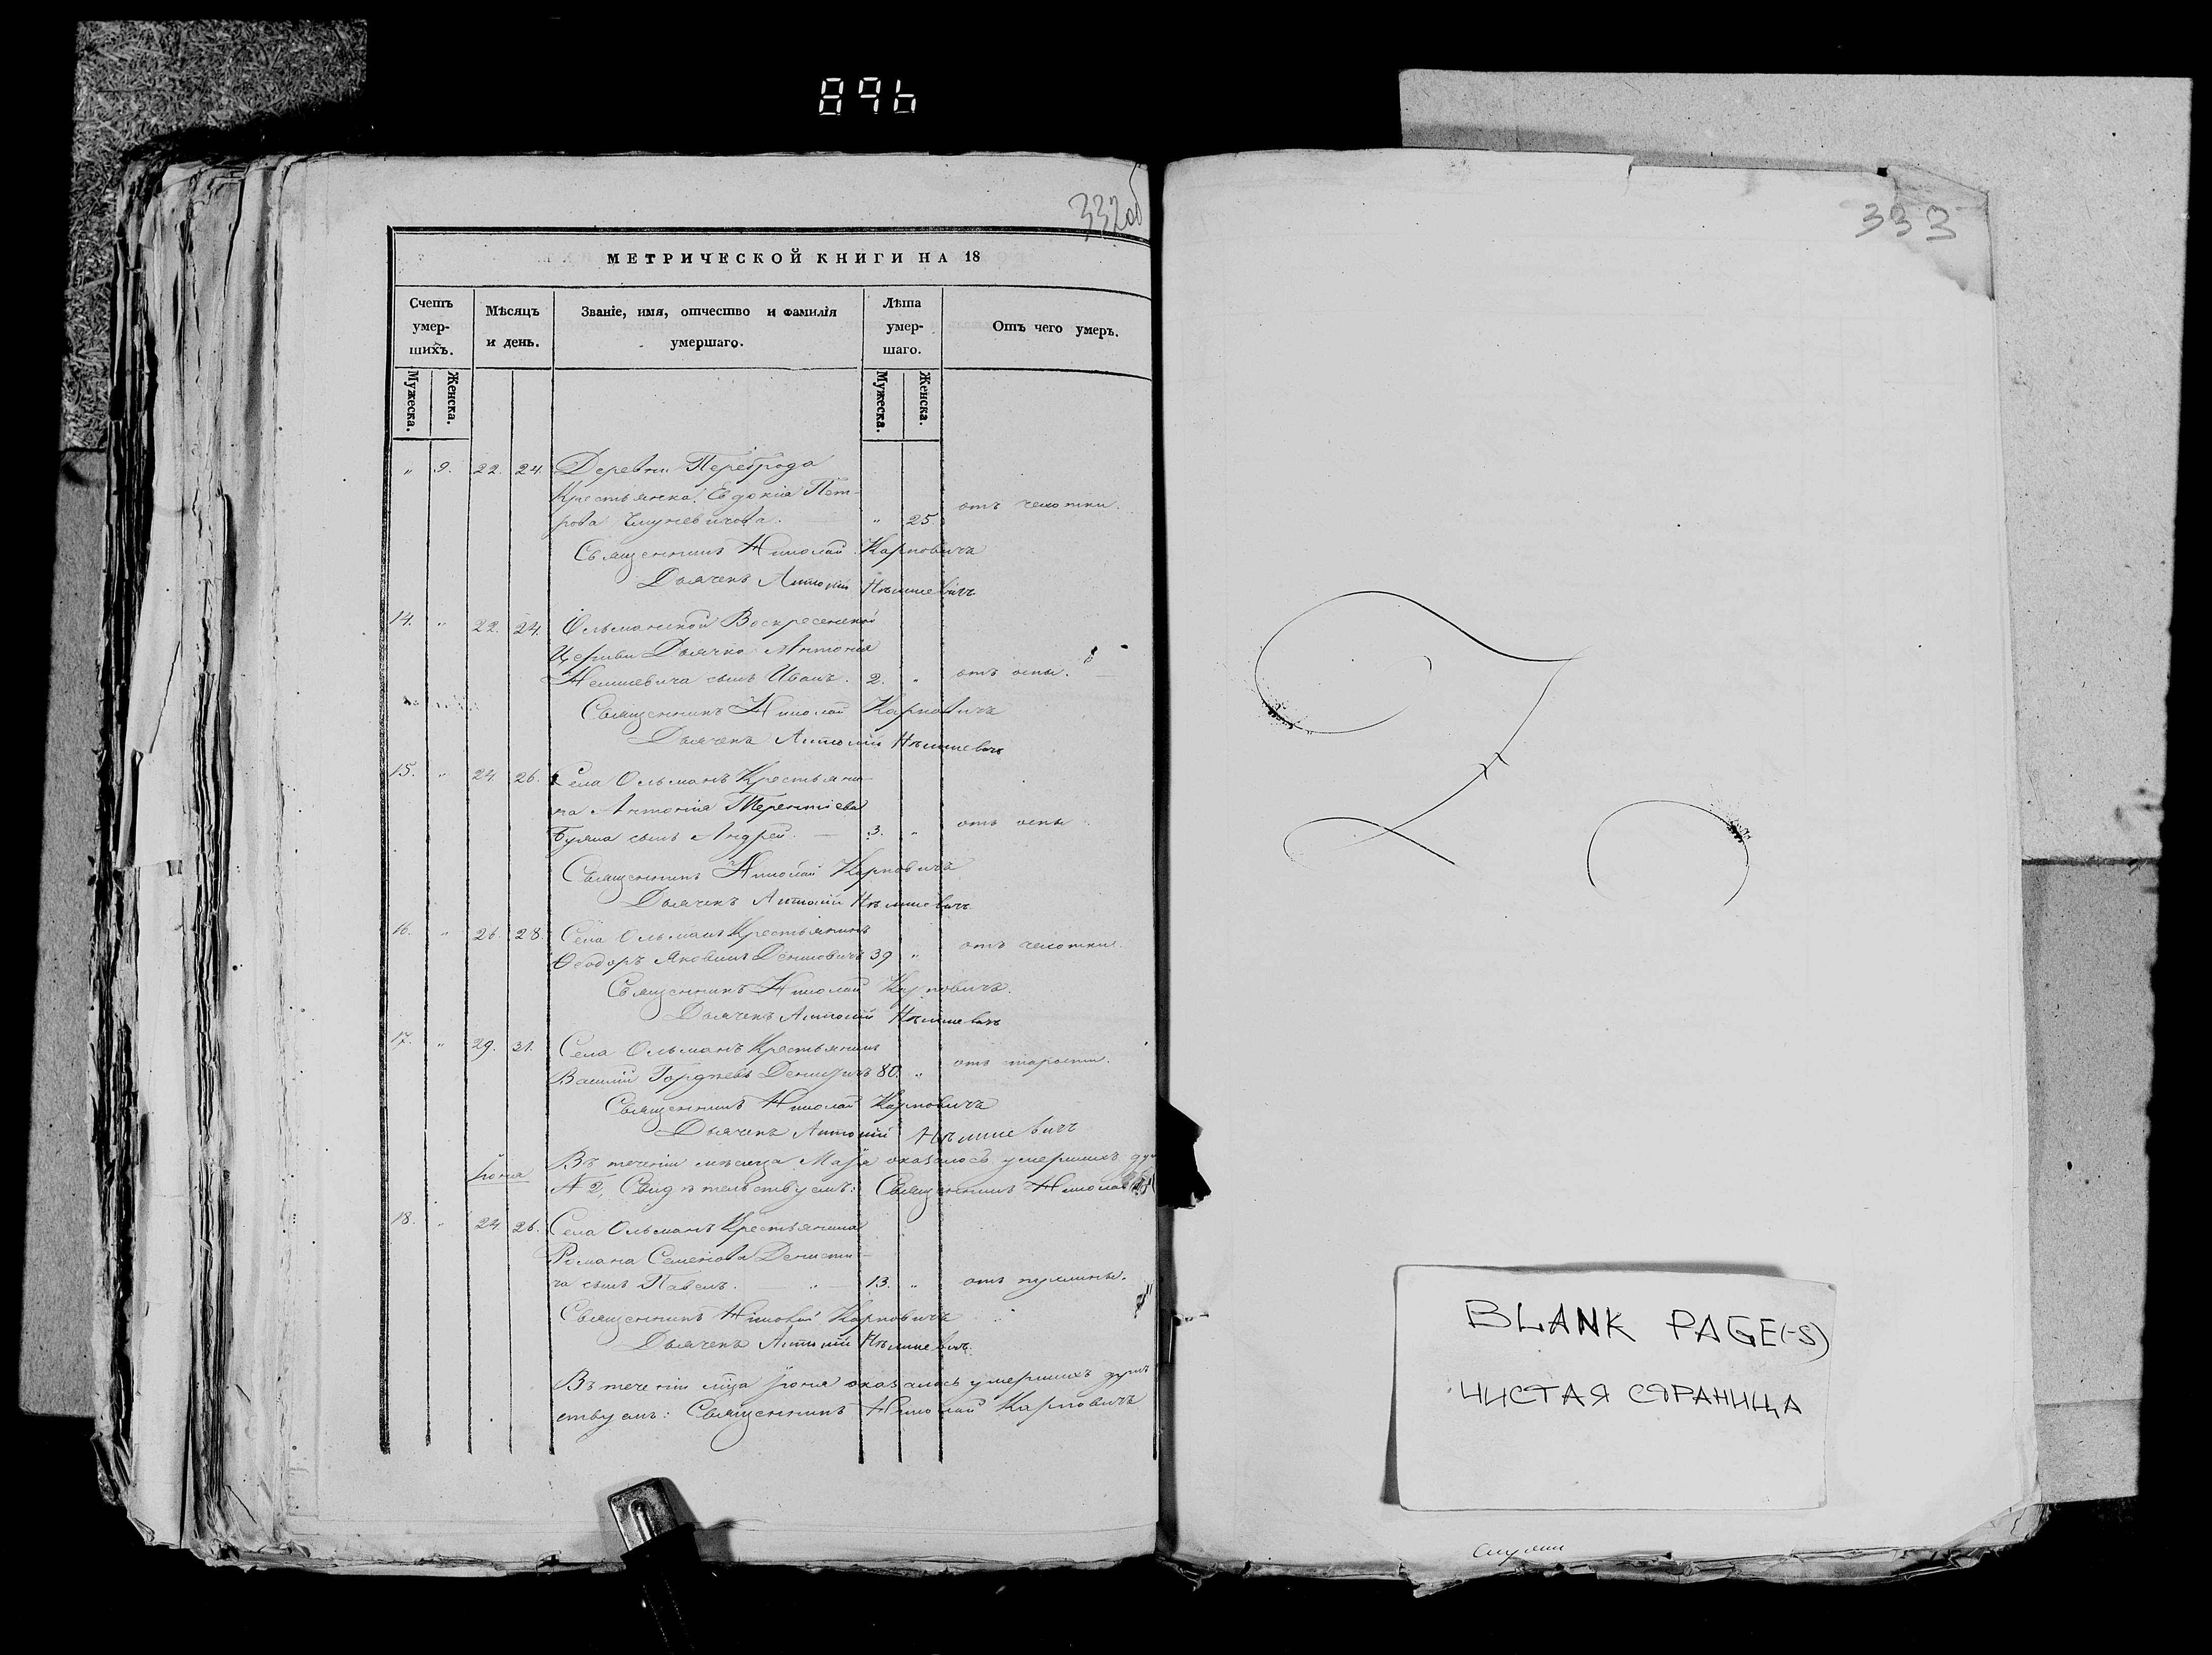 896
332об
МЕТРИЧЕСКОЙ КНИГИ НА 18
Счетъ умер-шихъ.
Мѣсяцъ и день.
Званіе, имя, отчество и фамилія умершаго.
Лѣта умер-шаго.
Отъ чего умеръ.
Мужеска.
Женска.
Мужеска.
Женска.
" 9. 22. 24. Деревни Переброда
Крестьянка Евдокія Пет-
рова " 25 отъ чехотки.
Священникъ Николай Карповичъ
Дьячекъ Антоній Нѣмшевичъ
14. " 22. 24. Ольманской Воскресенской
Церкви Дьячка Антонія
Немшевича сынъ Иванъ. 2. " отъ оспы.
Священникъ Николай Карповичъ
Дьячекъ Антоній Нѣмшевичъ
15. " 24. 26. Села Ольманъ Крестьяни-
на Антонія Терентіева
сынъ Андрей. 3. " отъ оспы
Священникъ Николай Карповичъ
Дьячекъ Антоній Нѣмшевичъ
16. " 26. 28. Села Ольманъ Крестьянинъ
Ѳеодоръ Яковлевъ 39 " отъ чехотки.
Священникъ Николай Карповичъ.
Дьячекъ Антоній Нѣмшевичъ
17. " 29. 31. Села Ольманъ Крестьянинъ
Василій Гордѣевъ 80. " отъ старости.
Священникъ Николай Карповичъ
Дьячекъ Антоній Нѣмшевичъ
Въ теченіи мѣсяца Маія оказалось умершихъ
Іюня
Свидѣтельствуемъ: Священникъ Николай
18. " 24. 26. Села Ольманъ Крестьянина
Романа Семенова
сынъ Павелъ. " 13. " отъ
Священникъ Николай Карповичъ
Дьячекъ Антоній Нѣмшевичъ.
Въ теченіи Іюня оказалось умершихъ душъ
ствуемъ: Священникъ Николай Карповичъ
333
BLANK PAGE(-S)
ЧИСТАЯ СТРАНИЦА